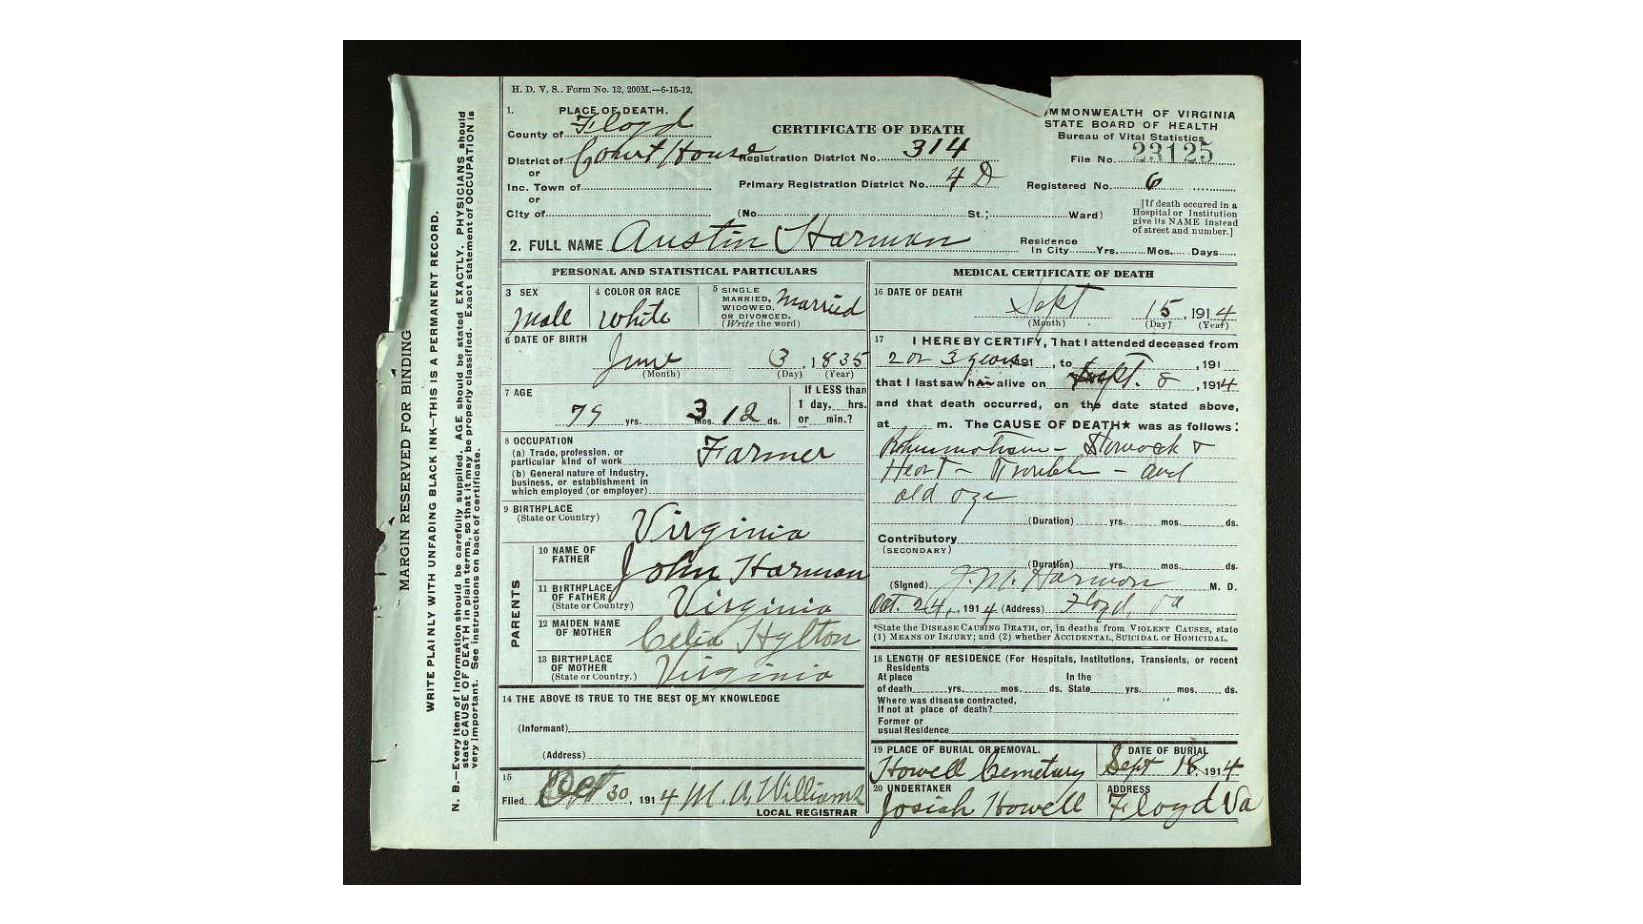 H. D. V. S.. Form No. 12, 200M.—6-15-12.
1. PLACE OF DEATH.
County of Floyd
District of Court House
or
Inc. Town of
or
City of
CERTIFICATE OF DEATH
Registration District No. 314
Primary Registration District No. 4 D
(No St.; Ward)
MMONWEALTH OF VIRGINIA
STATE BOARD OF HEALTH
Bureau of Vital Statistics
File No. 23125
Registered No. 6
[If death occured in a
Hospital or Institution
give its NAME instead
of street and number.]
2. FULL NAME Austin Harman
Residence
In City Yrs. Mos. Days
PERSONAL AND STATISTICAL PARTICULARS
3 SEX
Male
4 COLOR OR RACE
White
5 SINGLE
MARRIED,
WIDOWED,
OR DIVORCED.
(Write the word)
Married
6 DATE OF BIRTH
June 3, 1835
(Month) (Day) (Year)
7 AGE
79 yrs. 3 mos. 12 ds.
If LESS than
1 day, hrs.
or min.?
8 OCCUPATION
(a) Trade, profession, or
particular kind of work
Farmer
(b) General nature of Industry,
business, or establishment in
which employed (or employer)
9 BIRTHPLACE
(State or Country)
Virginia
PARENTS
10 NAME OF
FATHER
John Harman
11 BIRTHPLACE
OF FATHER
(State or Country)
Virginia
12 MAIDEN NAME
OF MOTHER
Celia Hylton
13 BIRTHPLACE
OF MOTHER
(State or Country.)
Virginia
14 THE ABOVE IS TRUE TO THE BEST OF MY KNOWLEDGE
(Informant)
(Address)
15
Filed Oct 30, 1914 M. A. Williams
LOCAL REGISTRAR
MEDICAL CERTIFICATE OF DEATH
16 DATE OF DEATH
Sept 15, 1914
(Month) (Day) (Year)
17 I HEREBY CERTIFY, That I attended deceased from
2 or 3 years, 191 , to , 191
that I last saw him alive on Sept. 8, 1914
and that death occurred, on the date stated above,
at m. The CAUSE OF DEATH★ was as follows:
Rheumatism - Stomach &
Heart - Trouble - and
old age
(Duration) yrs. mos. ds.
Contributory
(SECONDARY)
(Duration) yrs. mos. ds.
(Signed) J. M. Harman M. D.
Oct. 24, 1914 (Address) Floyd, Va
*State the DISEASE CAUSING DEATH, or, in deaths from VIOLENT CAUSES, state
(1) MEANS OF INJURY; and (2) whether ACCIDENTAL, SUICIDAL or HOMICIDAL.
18 LENGTH OF RESIDENCE (For Hospitals, Institutions, Transients, or recent
Residents
At place In the
of death yrs. mos. ds. State yrs. mos. ds.
Where was disease contracted,
If not at place of death?
Former or
usual Residence
19 PLACE OF BURIAL OR REMOVAL.
Howell Cemetary
DATE OF BURIAL
Sept 18, 1914
20 UNDERTAKER
Josiah Howell
ADDRESS
Floyd Va
MARGIN RESERVED FOR BINDING
WRITE PLAINLY WITH UNFADING BLACK INK—THIS IS A PERMANENT RECORD.
N. B.—Every item of information should be carefully supplied. AGE should be stated EXACTLY. PHYSICIANS should
state CAUSE OF DEATH in plain terms, so that it may be properly classified. Exact statement of OCCUPATION is
very important. See instructions on back of certificate.